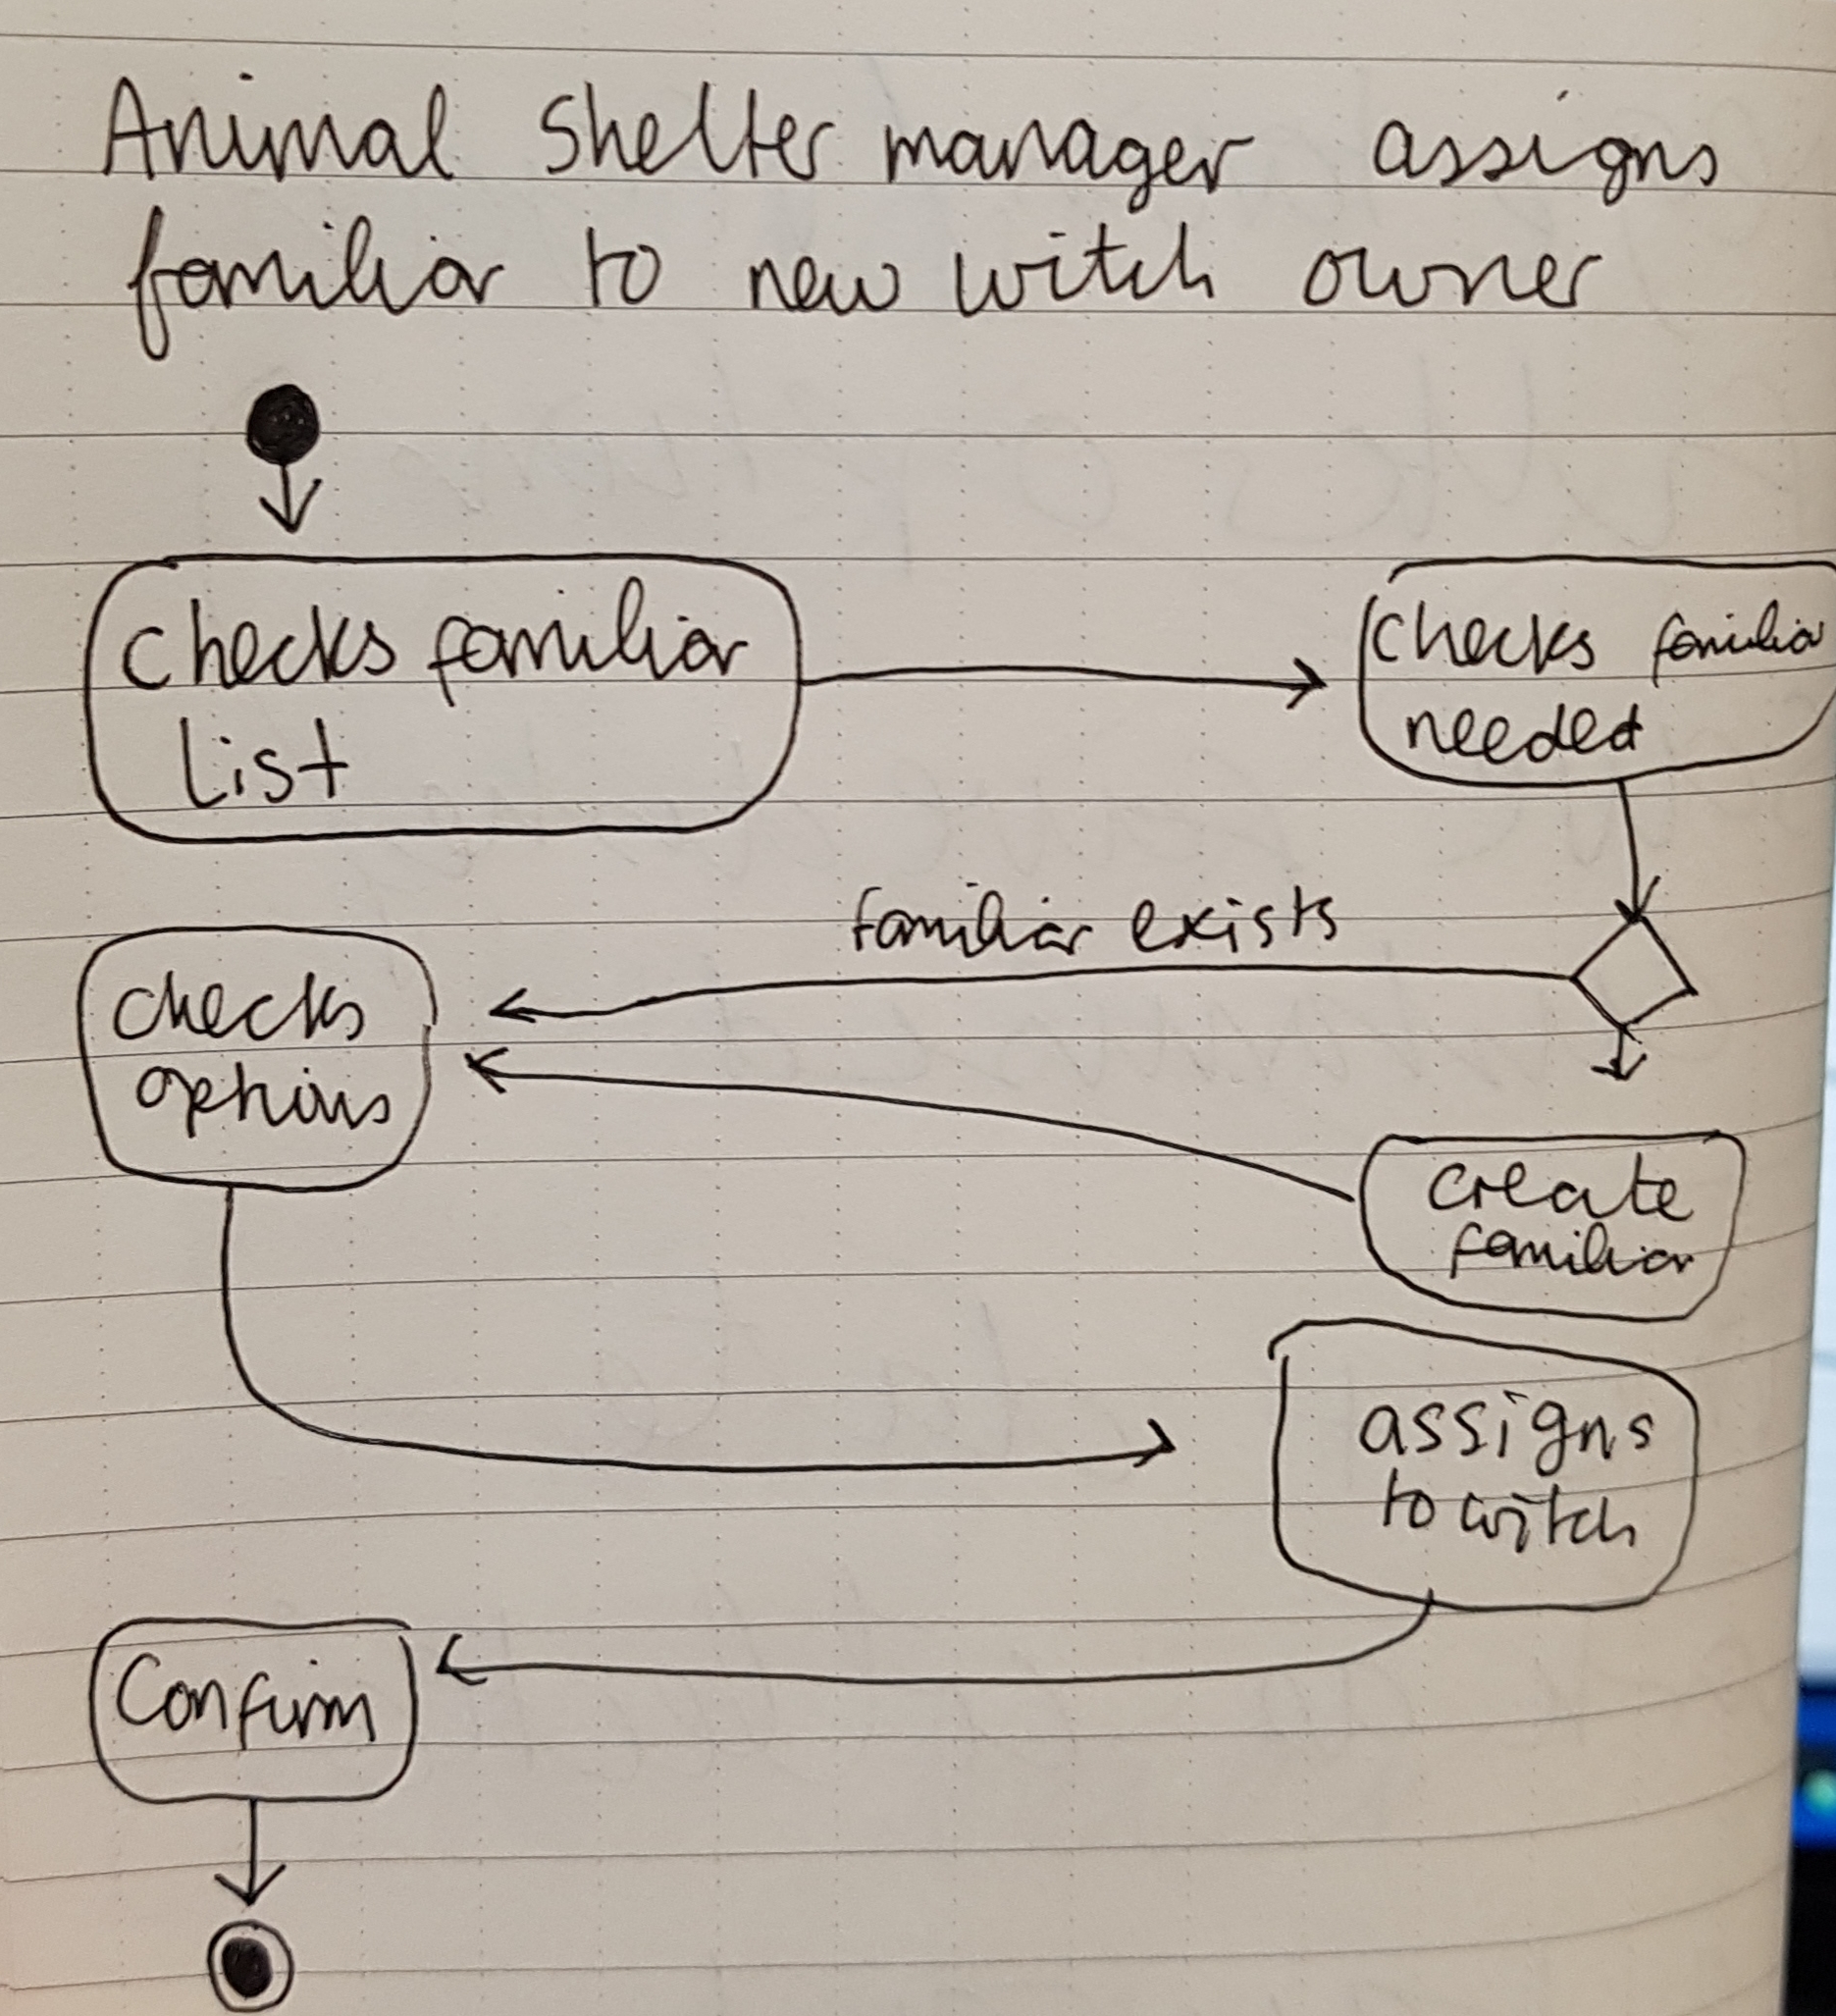 Animal Shelter manager assigns
familiar to new witch owner
Checks familiar
List
Checks familiar
needed
familiar exists
checks
options
create
familiar
assigns
to witch
Confirm